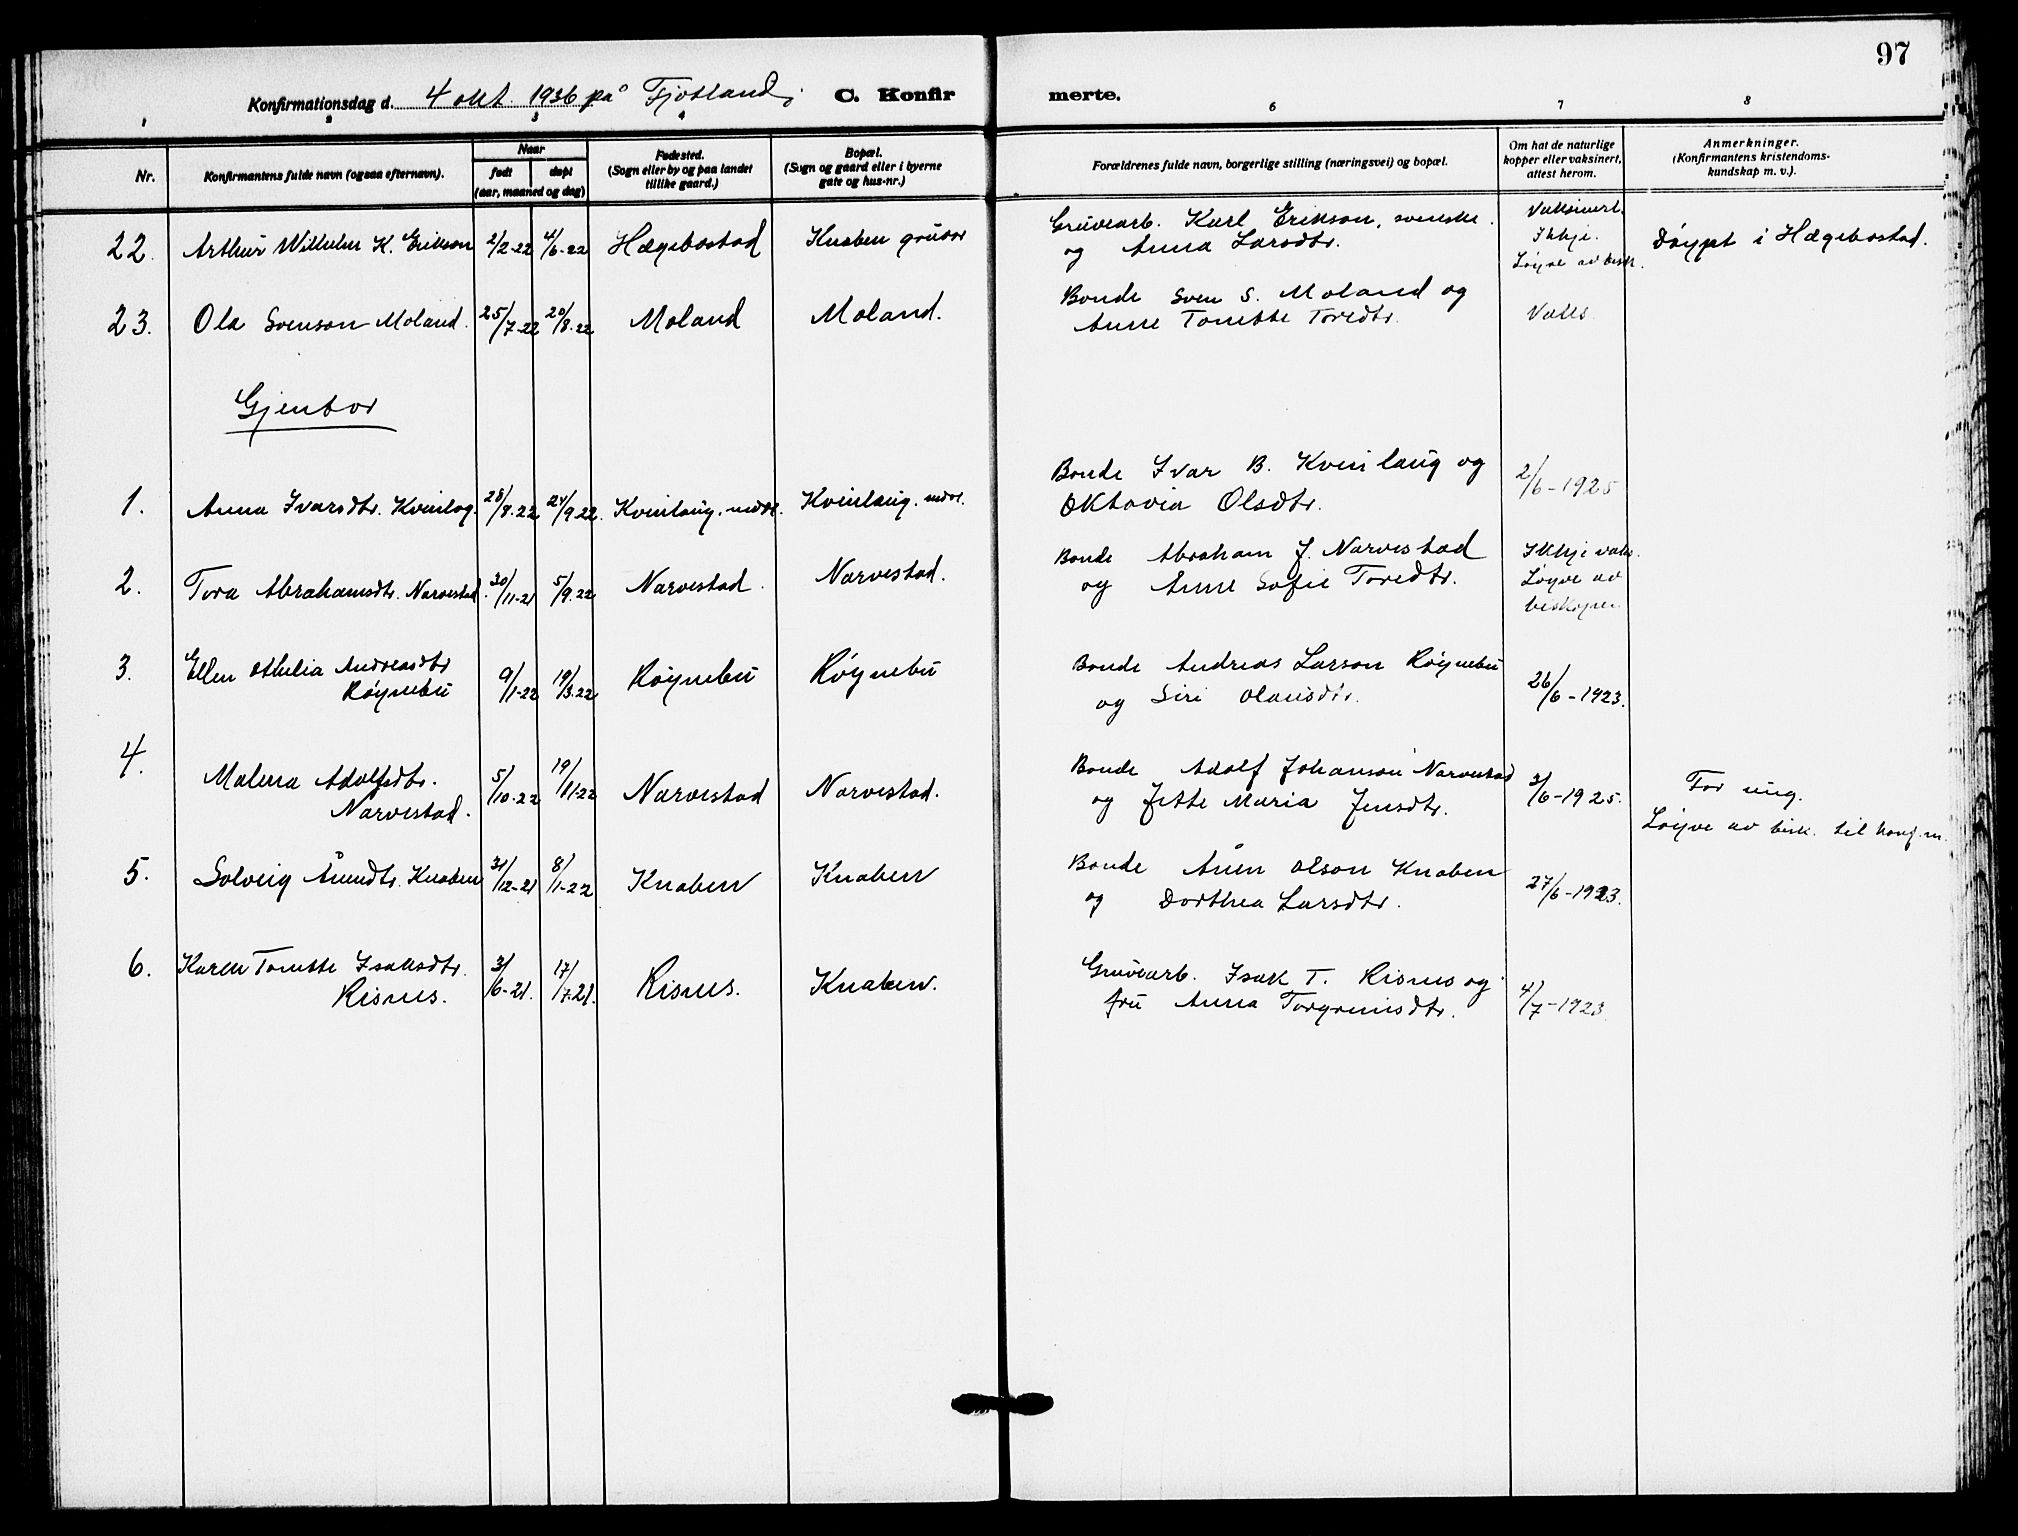 97
Konfirmationsdag d. 4 okt. 1936 på Fjotland; C. Konfir merte.
1 2 3 4 6 7 8
Nr.
Konfirmantens fulde navn (ogsaa efternavn).
Naar
født døpt
(aar, maaned og dag)
Fødested.
(Sogn eller by og paa landet
tillike gaard.)
Bopæl.
(Sogn og gaard eller i byerne
gate og hus-nr.)
Forældrenes fulde navn, borgerlige stilling (næringsvei) og bopæl.
Om hat de naturlige
kopper eller vaksinert,
attest herom.
Anmerkninger.
(Konfirmantens kristendoms-
kundskap m. v.).
22. Arthur Wilhelm K. Erikson 2/2-22 4/6-22 Hægebostad Knaben gruver
Gruvearb. Karl Erikson, svenske.
og Anna Larsdtr.
Vaksinert.
Ikkje.
Løyve av bisk.
Døypt i Hægebostad.
23. Ola Svenson Moland. 25/7-22 20/8-22 Moland Moland.
Bonde Sven S. Moland og
Anne Tomette Toredtr.
Vaks.
Gjentor
1. Anna Ivarsdtr. Kvinlog. 28/8-22 24/9-22. Kvinlaug. nedre. Kvinlaug. nedre.
Bonde Ivar B. Kvinlaug og
Oktavia Olsdtr.
2/6-1925
2. Tora Abrahamsdtr. Narvestad. 30/11-21 5/9-22 Narvestad. Narvestad.
Bonde Abraham J. Narvestad
og Anne Sofie Toredtr.
Ikkje vaks.
Løyve av
biskopen
3. Ellen Othelia Andreasdtr
Røynebu 9/1-22 19/3-22 Røynebu Røynebu
Bonde Andreas Larson Røynebu
og Siri Olausdtr.
26/6-1923.
4. Malena Adolfsdtr.
Narvestad. 5/10-22 19/11-22 Narvestad Narvestad.
Bonde Adolf Johanson Narvestad
og Jette Maria Jensdtr.
3/6-1925.
For ung.
Løyve av bisk. til konf.m.
5. Solveig Åundtr. Knaben 31/12-21 8/1-22 Knaben Knaben
Bonde Åuen Olson Knaben
og Dorthea Larsdtr.
27/6-1923.
6. Karen Tomette Isaksdtr.
Risnes. 3/6-21. 17/7-21. Risnes. Knaben.
Gruvearb. Isak T. Risnes og
fru Anna Torgrimsdtr.
4/7-1923.